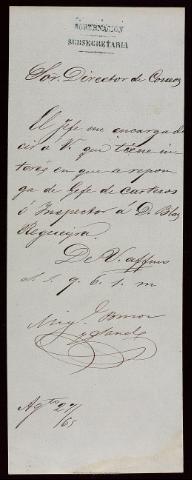 GOBERNACION
SUBSECRETARIA
Sor. Director de Correos
El Jefe me encarga de
cir á V. que tiene in
terés en que a
ga de Jefe de carteros
ó Inspector á D. Blas
Regueyra.
De V. affmo
s. s. q. b. s. m
Mig.
Agto 27/65